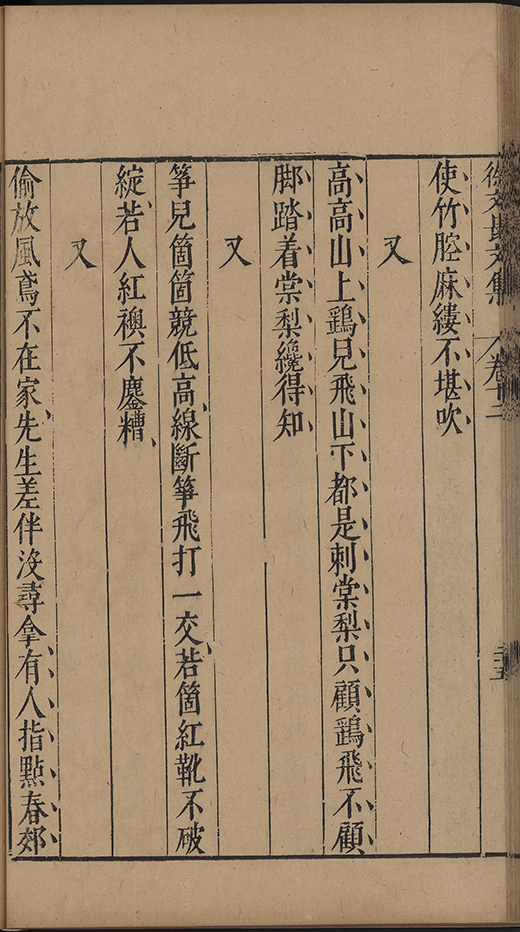 徐文長文集 卷十二 二十五
使竹腔麻縷不堪吹
又
高高山上鷂兒飛山下都是刺棠梨只顧鷂飛不顧
脚踏着棠梨纔得知
又
箏兒箇箇競低高線斷箏飛打一交若箇紅靴不破
綻若人紅襖不鏖糟
又
偷放風鳶不在家先生差伴沒尋拿有人指點春郊